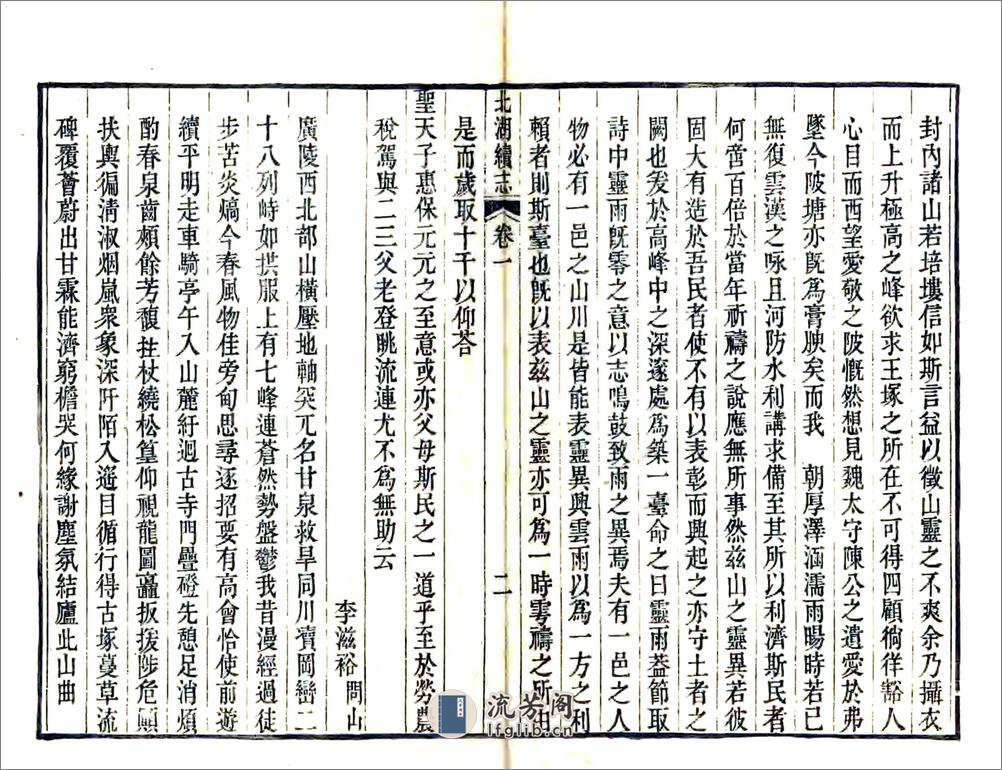 封內諸山若培塿信如斯言益以徵山靈之不爽余乃攝衣
而上升極高之峰欲求王塚之所在不可得四顧徜徉豁人
心目而西望愛敬之陂慨然想見魏太守陳公之遺愛於弗
墜今陂塘亦旣爲膏腴矣而我　朝厚澤涵濡雨暘時若已
無復雲漢之咏且河防水利講求備至其所以利濟斯民者
何啻百倍於當年祈禱之說應無所事然茲山之靈異若彼
固大有造於吾民者使不有以表彰而興起之亦守土者之
闕也爰於高峰中之深邃處爲築一臺命之曰靈雨葢節取
詩中靈雨旣零之意以志鳴鼓致雨之異焉夫有一邑之人
物必有一邑之山川是皆能表靈異興雲雨以爲一方之利
賴者則斯臺也旣以表茲山之靈亦可爲一時雩禱之所由
北湖續志　卷一　二
是而歲取十千以仰荅
聖天子惠保元元之至意或亦父母斯民之一道乎至於勞農
稅駕與二三父老登眺流連尤不爲無助云
李滋裕 問山
廣陵西北部山橫壓地軸突兀名甘泉救旱同川瀆岡巒二
十八列峙如拱服上有七峰連蒼然勢盤鬱我昔漫經過徒
步苦炎熇今春風物佳旁甸思尋逐招要有高會恰使前遊
續平明走車騎亭午入山麓紆迴古寺門疊磴先憩足消煩
酌春泉齒頰餘芳馥拄杖繞松篁仰視龍圖矗扳援陟危顚
扶輿徧淸淑烟嵐衆象深阡陌入遥目循行得古塚蔓草流
碑覆薈蔚出甘霖能濟窮檐哭何緣謝塵氛結廬此山曲
流芳阁
lfglib.cn